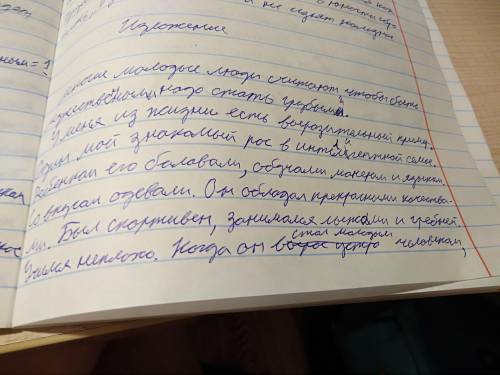 о юности обра
и не седает наследие
Изложение
многие молодые люди считают, чтобы быть
мужественным, надо стать грубым.
У меня из жизни есть выразительный пример.
Один мой знакомый рос в интеллегентной семье.
Ребенком его баловали, обучали манерам и языкам.
со вкусом одевали. Он обладал прекрасными качества-
ми. Был спортивен, занимался лыжами и греблей.
Учился неплохо. Когда он стал молодым человеком,